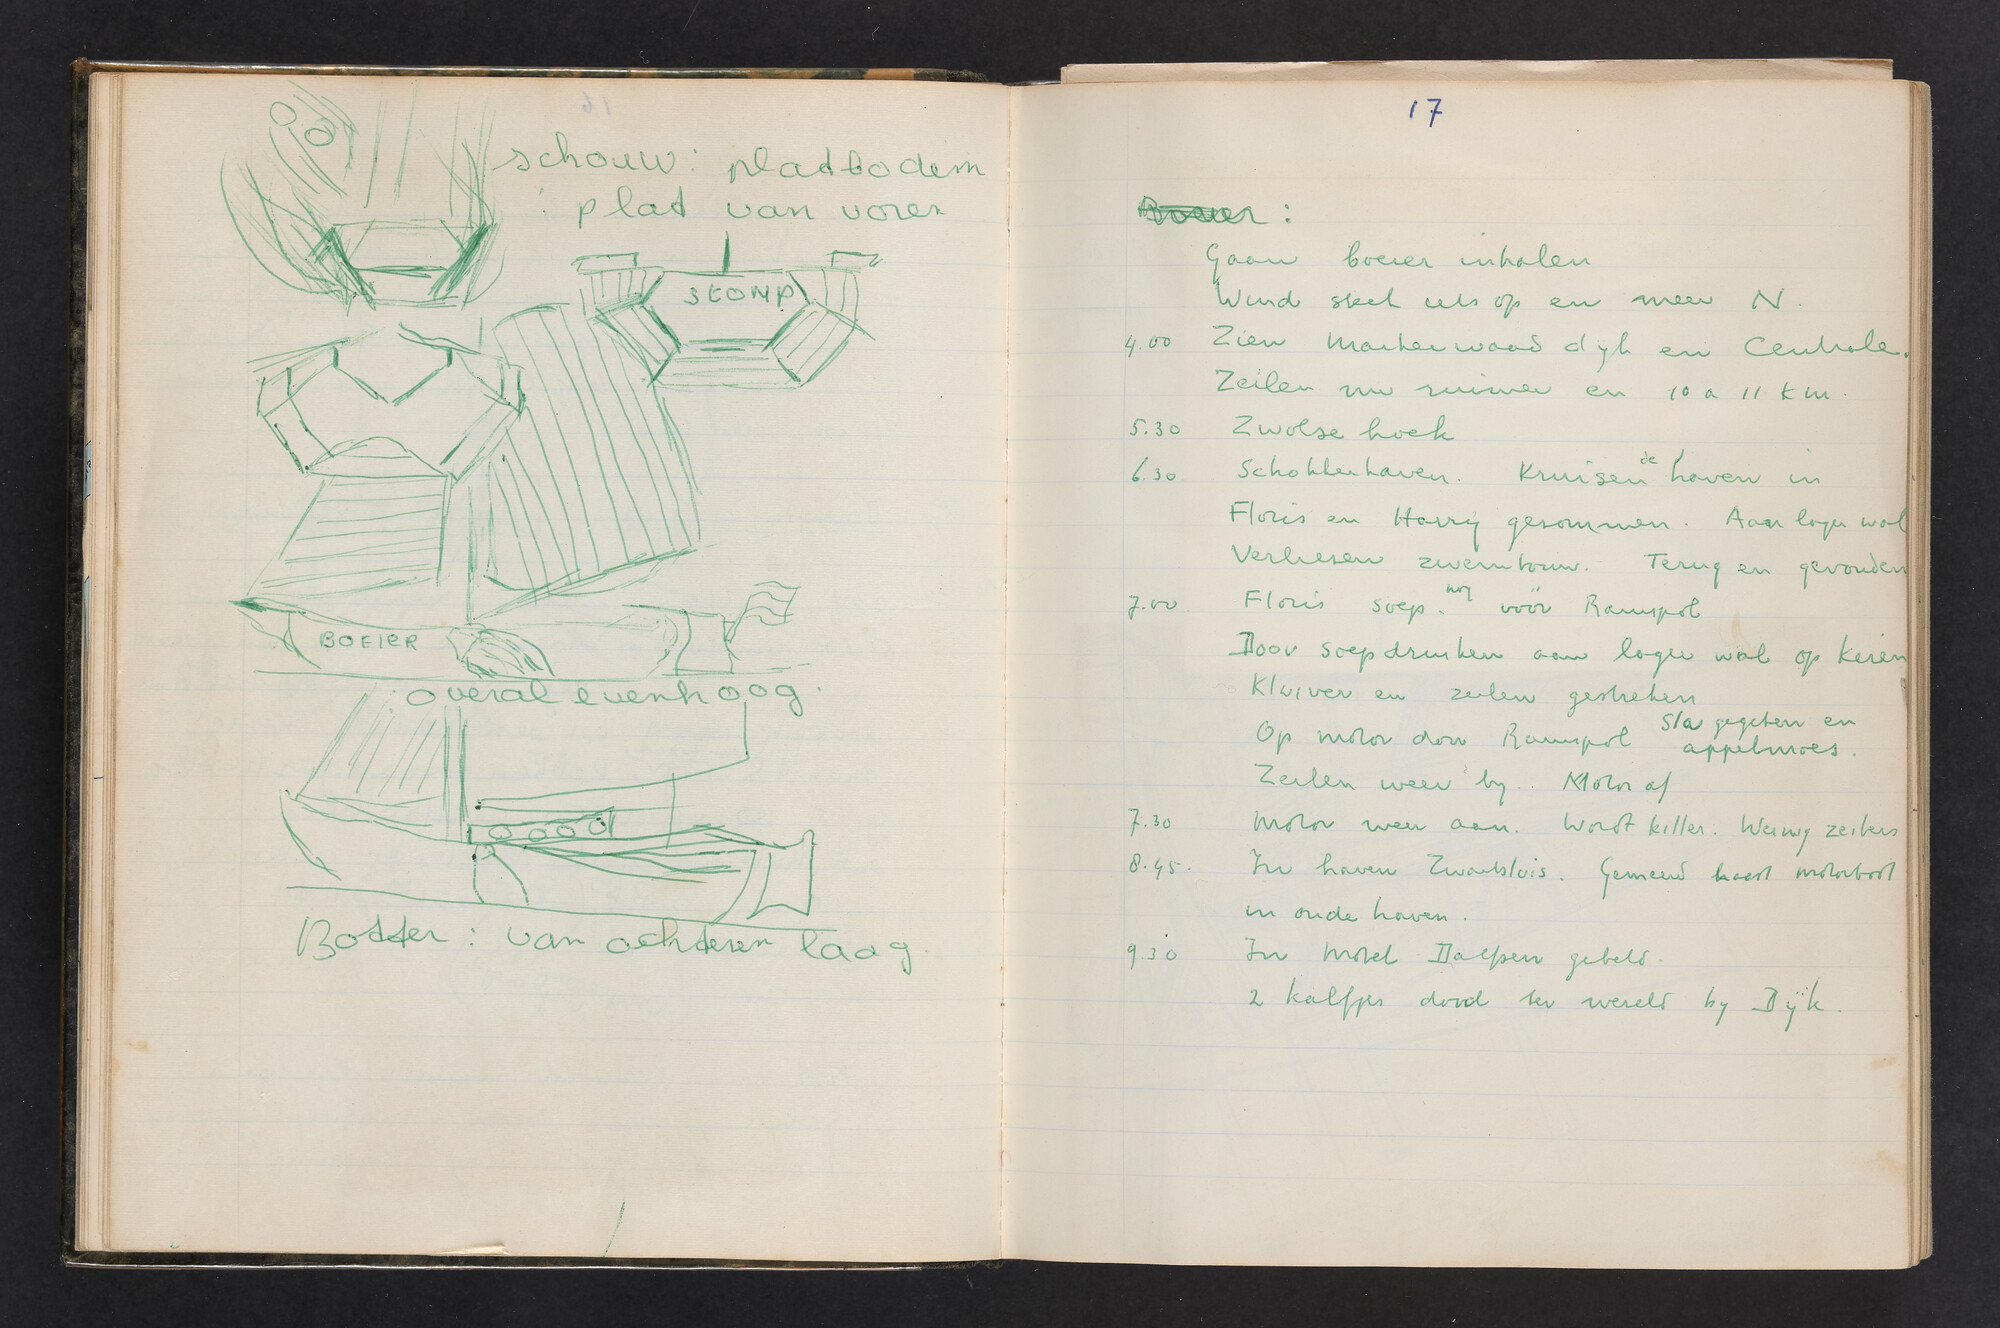 schouw: platbodem
: plat van voren
STOMP
BOEIER
overal evenhoog.
Botter: van achteren laag.
17
Boeier:
Gaan boeier inhalen
Wind stek iets op en meer N.
4.00 Zien Markerwaard dyk en Centrale.
Zeilen nu ruimer en 10 a 11 km.
5.30 Zwolse hoek
6.30 Schokkerhaven. Kruisen de haven in
Floris en Harry gezwommen. Aan lager wal
Verliezen zwemtouw. Terug en gevonden
7.00 Floris soep. nog vóór Ramspol
Door soep drinken aan lager wal op keren
Kluiver en zeilen gestreken
Op motor door Ramspol Sla gegeten en
appelmoes.
Zeilen weer by. Motor af
7.30 Motor weer aan. Wordt killer. Weinig zeilers
8.45. In haven Zwartsluis. Gemeerd naast motorboot
in oude haven.
9.30 In Motel Dalfsen gebeld.
2 kalfjes dood ter wereld by Dijk.